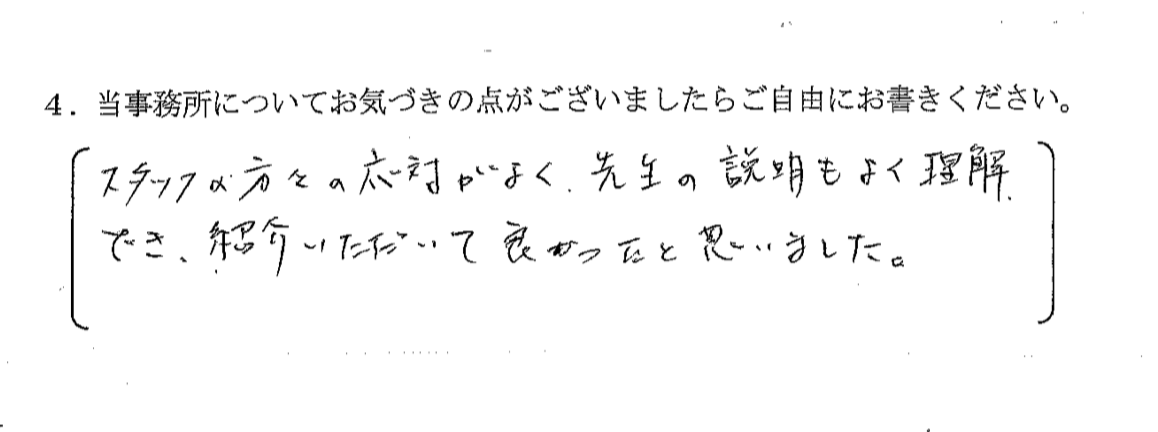 4．当事務所についてお気づきの点がございましたらご自由にお書きください。
スタッフの方々の応対がよく、先生の説明もよく理解
でき、紹介いただいて良かったと思いました。